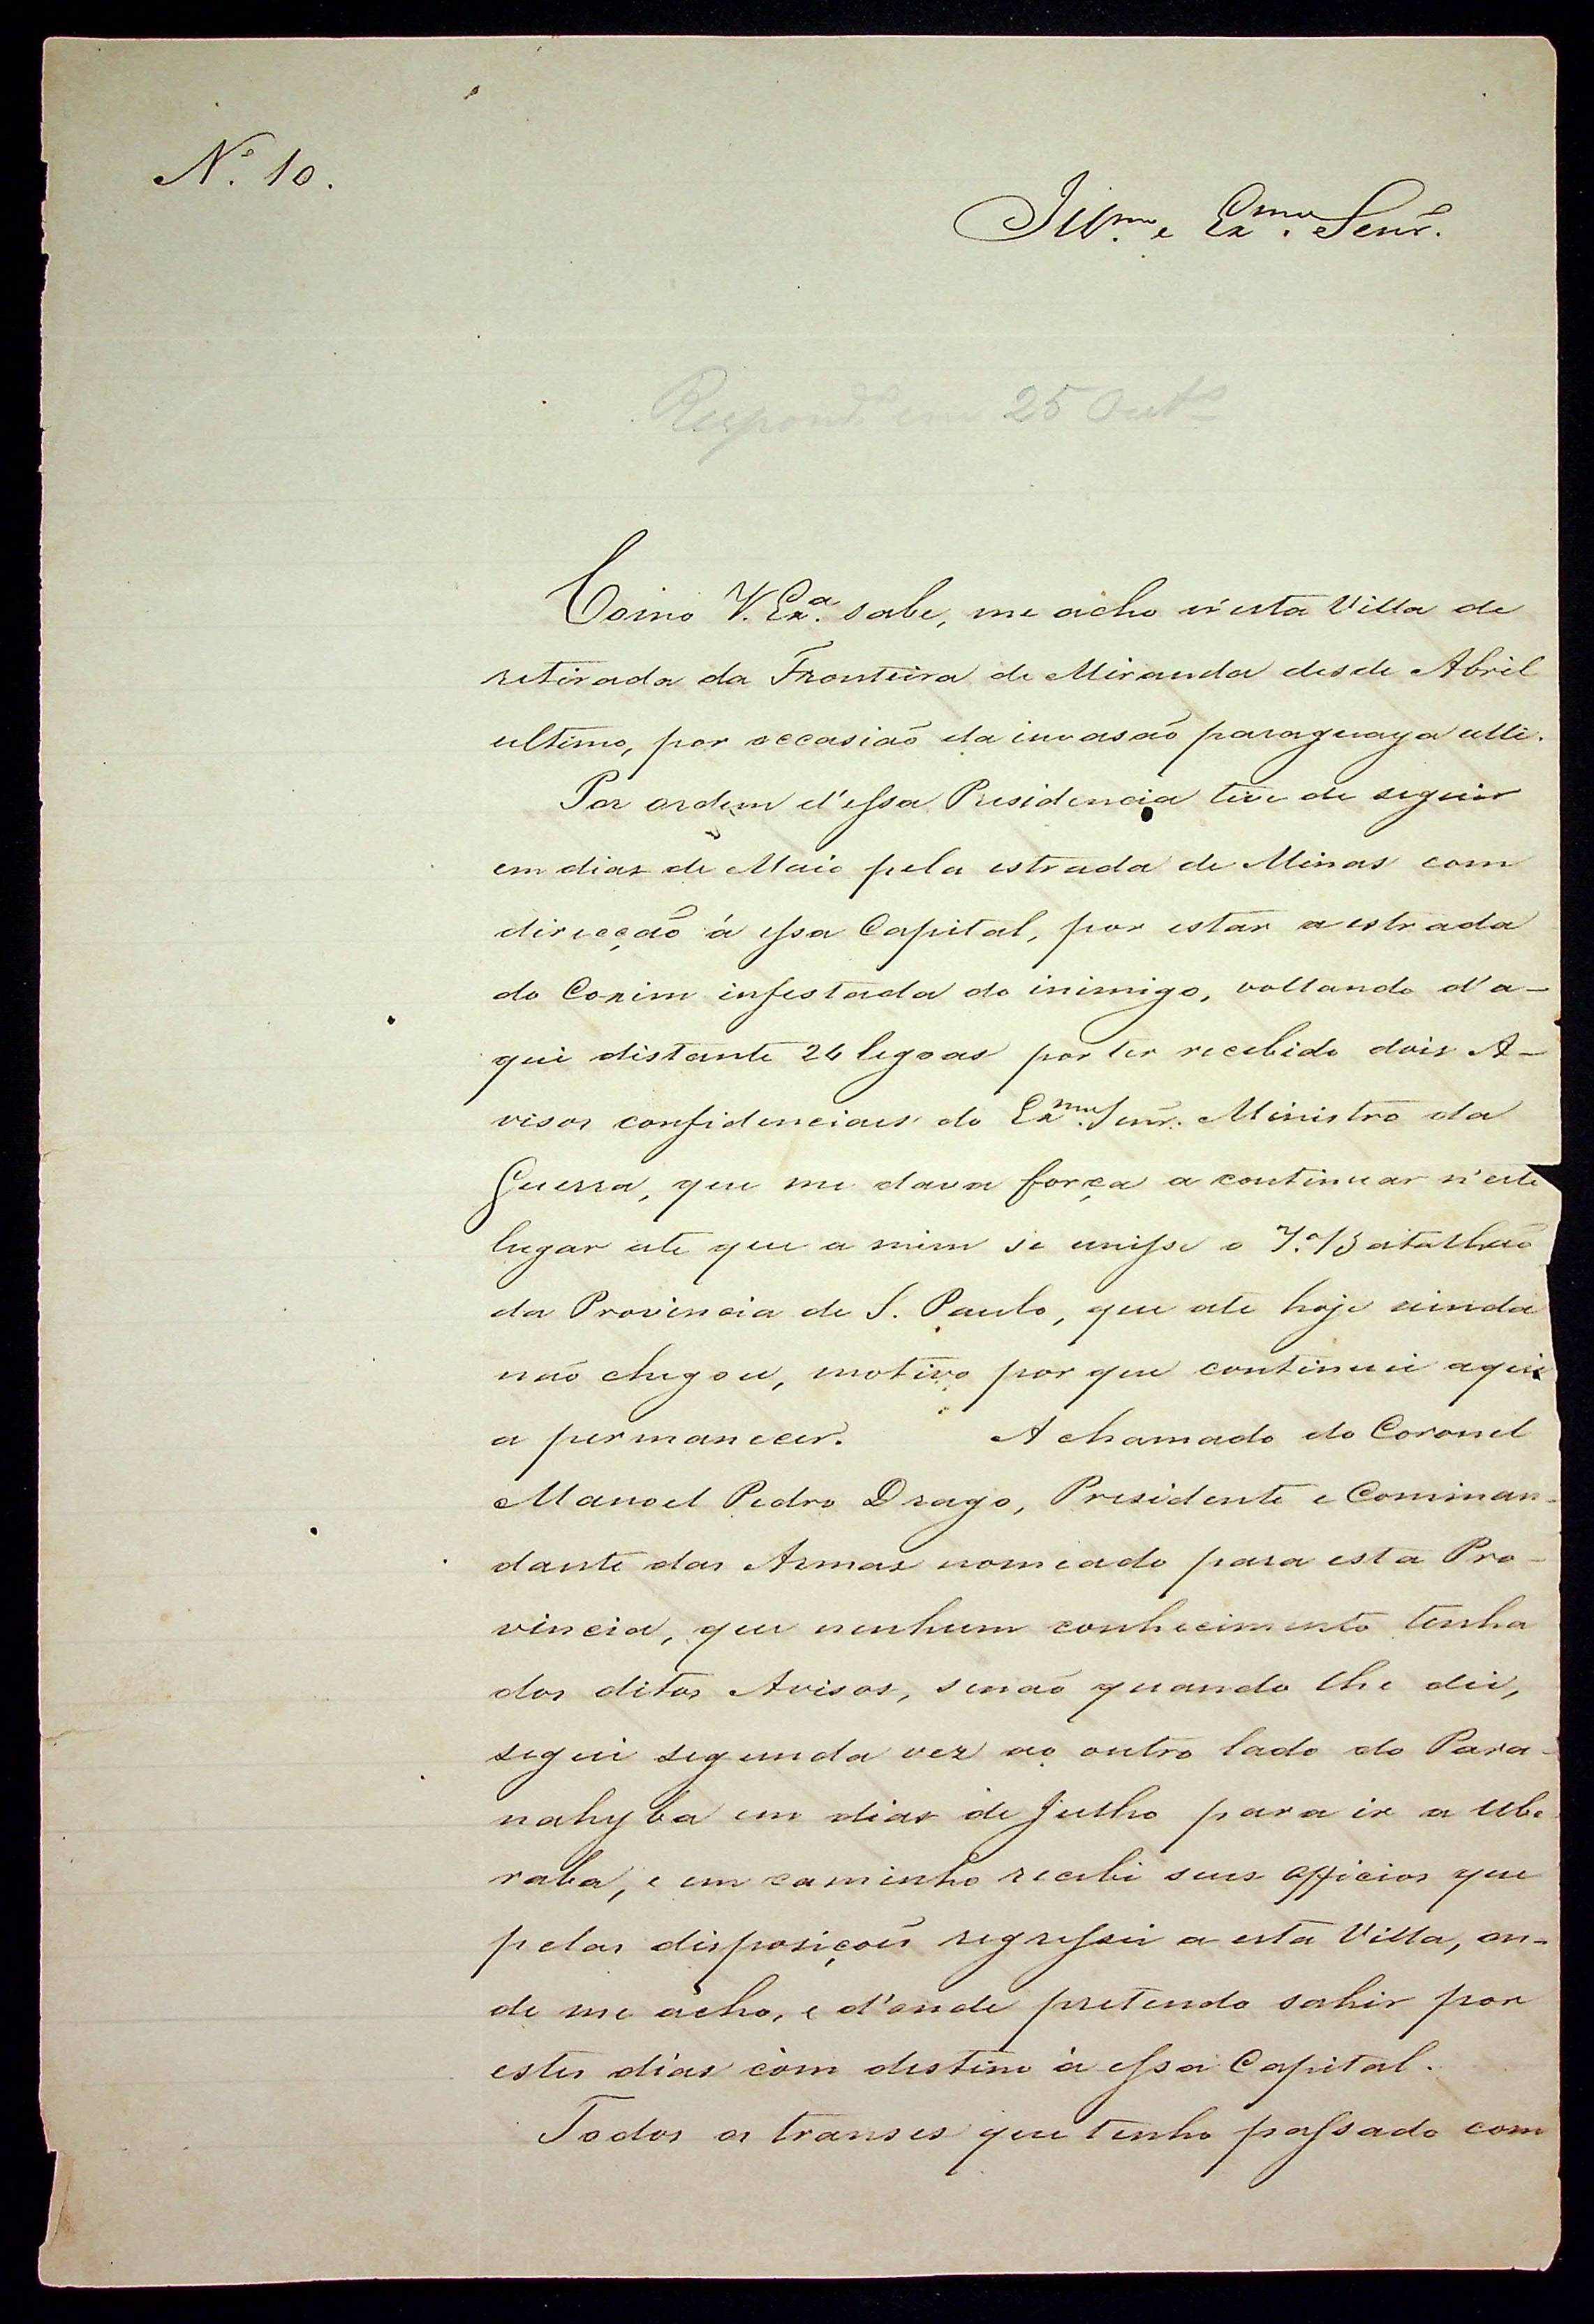 Nº 10.
Illmo. e Exmo. Senr.
Respondo em 25 Outo
Como V. Exa. sabe, me acho n'esta Villa de
retirada da Fronteira de Miranda desde Abril
ultimo, por occasião da invasão paraguaya alli.
Por ordem d'essa Presidencia tive de seguir
em dias de Maio pela estrada de Minas com
direcção á essa Capital, por estar a estrada
do Coxim infestada do inimigo, voltando d'a-
qui distante 24 legoas por ter recebido dois A-
visos confidenciaes do Exmo. Senr. Ministro da
Guerra, que me dava força a continuar n'este
lugar ate que a mim se unisse o 7º Batalhão
da Provincia de S. Paulo, que ate hoje ainda
não chegou, motivo por que continuei aqui
a permanecer. A chamado do Coronel
Manoel Pedro Drago, Presidente e Comman-
dante das Armas nomeado para esta Pro-
vincia, que nenhum conhecimento tenha
dos ditos Avisos, senão quando lhe dei,
segui segunda vez ao outro lado do Para-
nahyba em dias de Julho para ir a Ube-
raba, e em caminho recebi seus officios que
pelas disposições regressei a esta Villa, on-
de me acho, e d'onde pretendo sahir por
estes dias com destino à essa Capital.
Todos os transes que tenho passado com